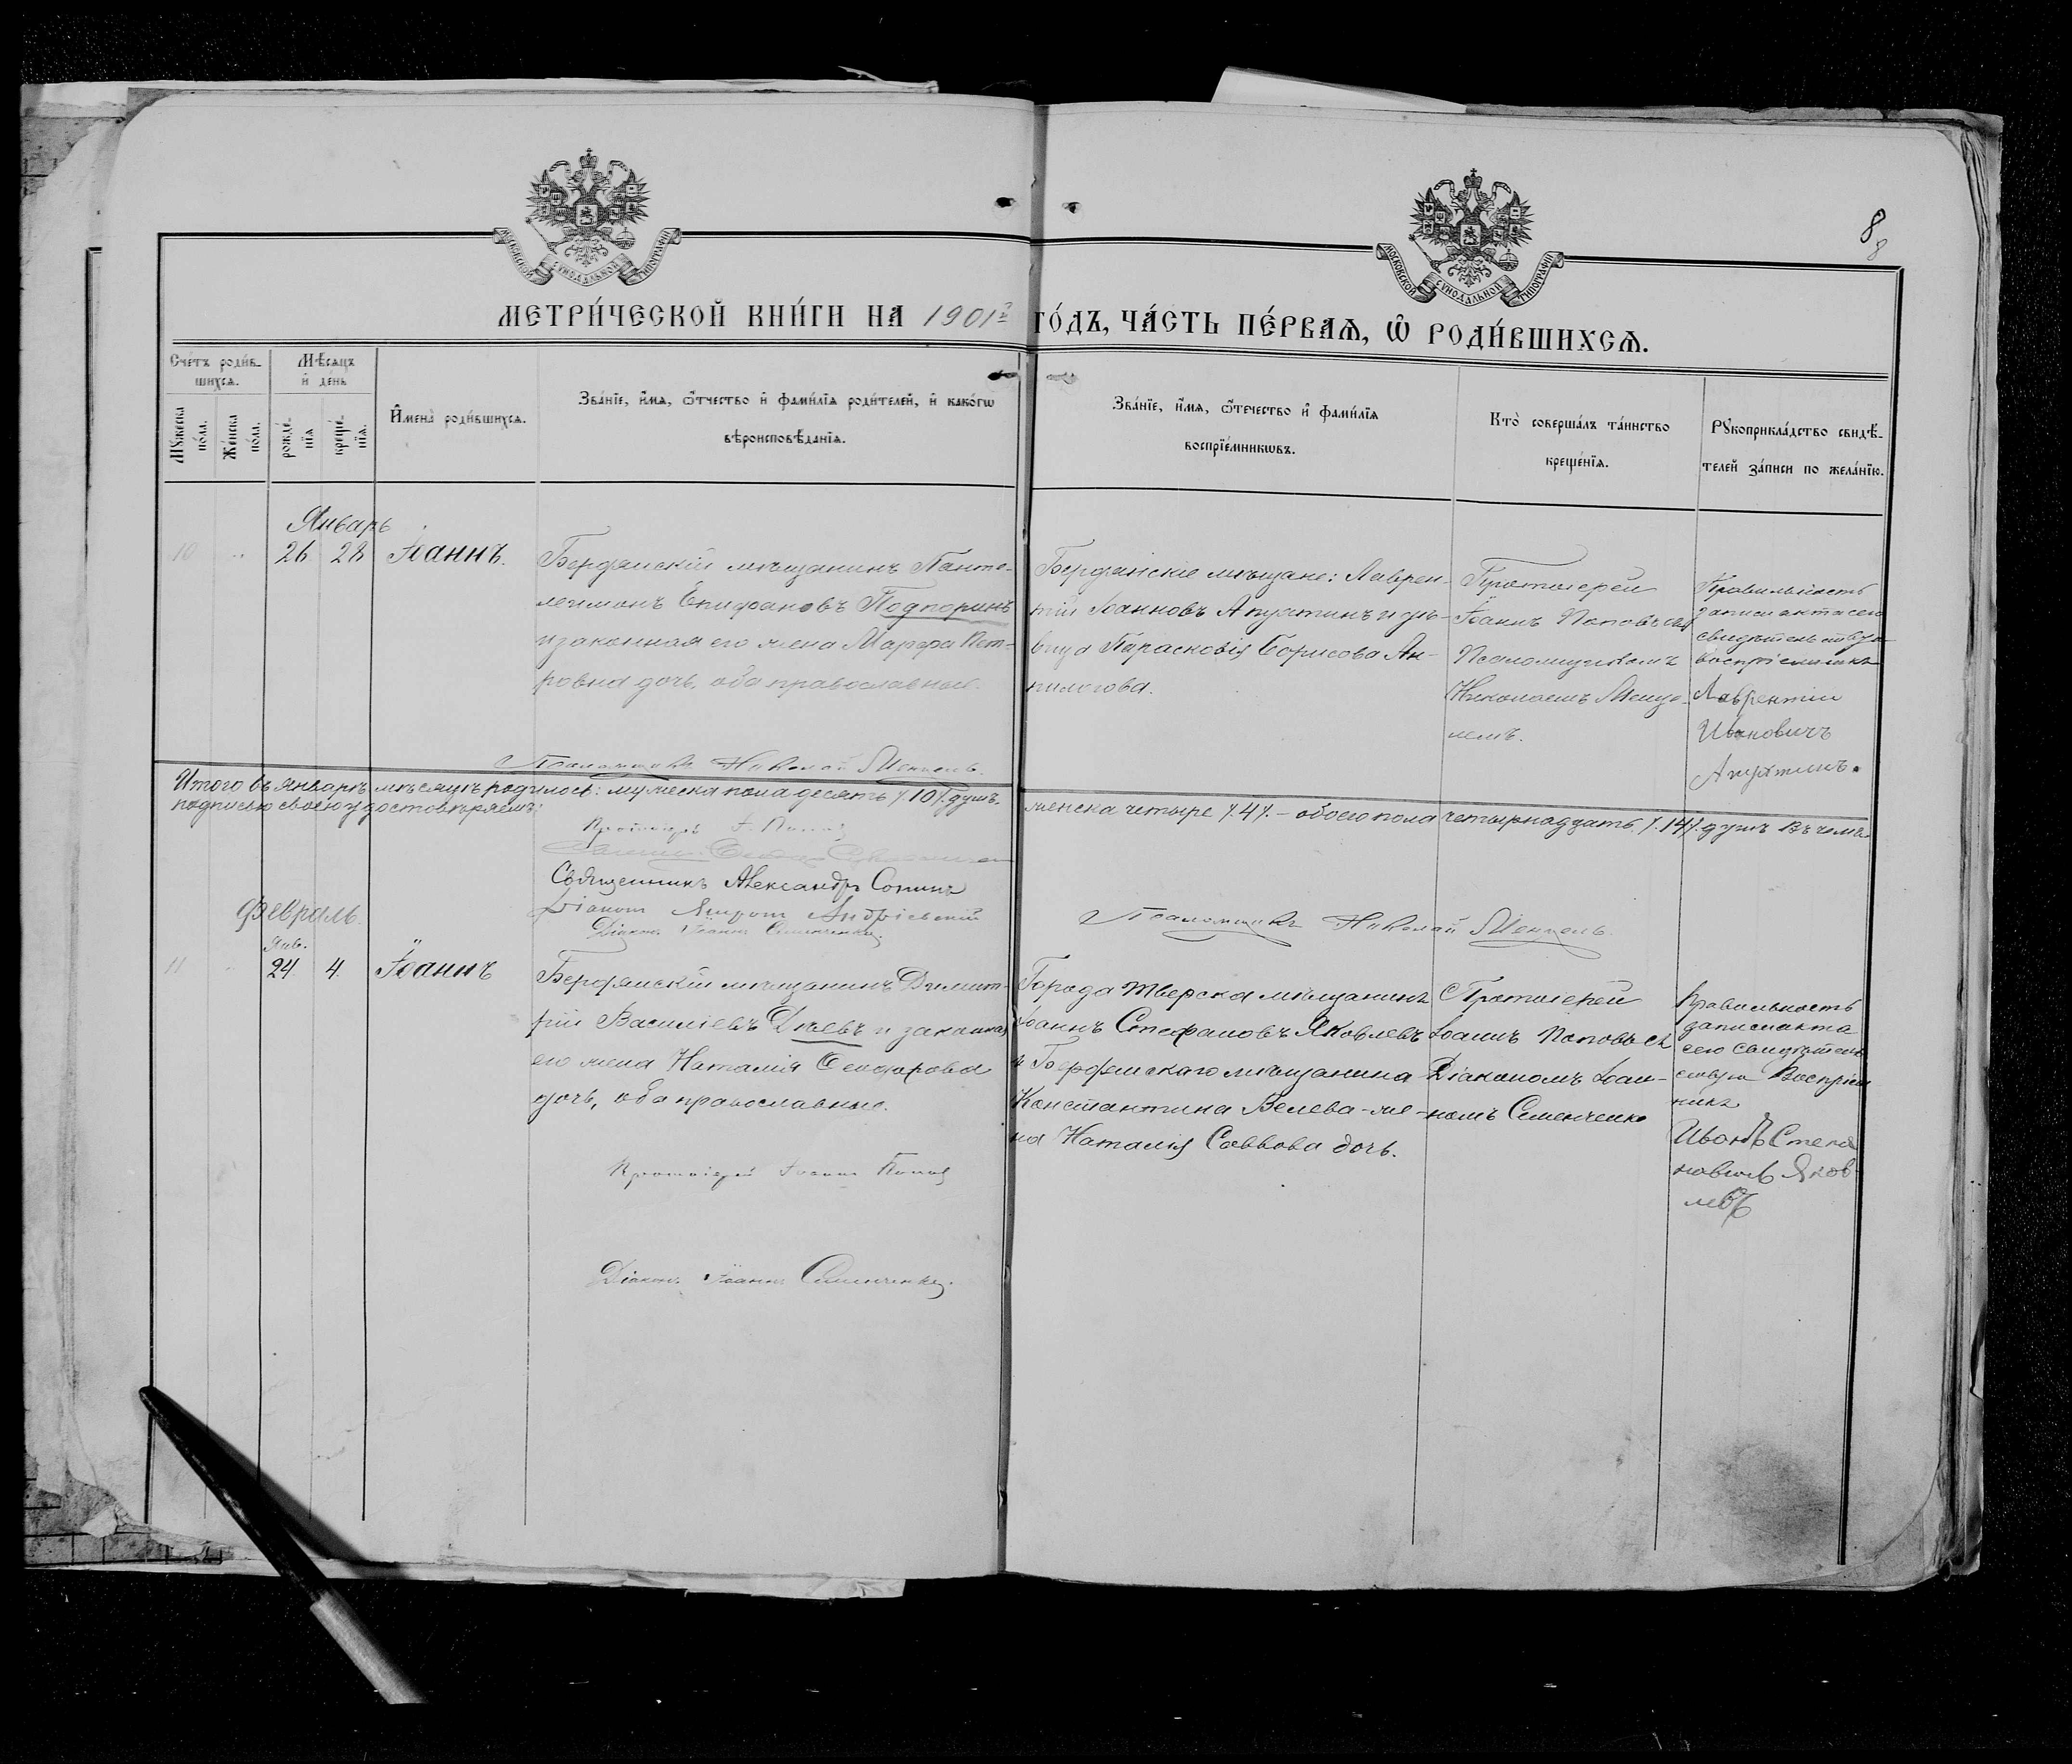 МОСКОВСКОЙ СѴНОДАЛЬНОЙ ТИПОГРАФІИ
МОСКОВСКОЙ СѴНОДАЛЬНОЙ ТИПОГРАФІИ
8
8
МЕТРИ́ЧЕСКОЙ КНИ́ГИ НА 1901й ГО́ДЪ, ЧА́СТЬ ПЕ́РВАѦ, Ѡ҆ РОДИ́ВШИХСѦ.
Сче́тъ роди́в-
шихсѧ.
Мѣ́сѧцъ
и҆ де́нь
Мꙋ́жеска
по́ла.
Же́нска
по́ла.
рожде́-
нїѧ
креще́-
нїѧ.
И҆мена̀ роди́вшихсѧ.
Зва́нїе, и҆́мѧ, ѻ҆́тчество и҆ фами́лїѧ роди́телей, и҆ како́гѡ
вѣроисповѣ́данїѧ.
Зва́нїе, и҆́мѧ, ѻ҆́течество и҆ фами́лїѧ
воспрїе́мникѡвъ.
Кто̀ соверша́лъ та́инство
креще́нїѧ.
Рꙋкоприкла́дство свидѣ́-
телей за́писи по жела́нїю.
Январь
10 „ 26 28 Іоаннъ.
Бердянскій мѣщанинъ Панте-
леимонъ Епифановъ Подпоринъ
и законная его жена Марфа Пет-
ровна дочь, оба православные.
Бердянскіе мѣщане: Лаврен-
тій Іоанновъ Апухтинъ и дѣ-
вица Парасковія Борисова Ан-
пилогова.
Протоіерей
Іоаннъ Поповъ съ
Псаломщикомъ
Николаемъ Менце-
лемъ.
Правильность
записи акта сего
свидѣтельствую
воспріемникъ
Лаврентій
Ивановичъ
Апухтинъ.
Псаломщикъ Николай Менцель.
Итого въ Январѣ мѣсяцѣ родилось: мужеска пола десять /.10/. душъ,
женска четыре /.4/. – обоего пола четырнадцать /.14/. душъ въ чемъ
подписью своею удостовѣряемъ:
Протоіерей І. Поповъ
Священникъ Александръ Сопинъ
Діаконъ Андріевскій
Діаконъ Іоаннъ Семенченко.
Псаломщикъ Николай Менцель.
Февраль.
Янв.
11 „ 24 4. Іоаннъ
Бердянскій мѣщанинъ Димит-
рій Василіевъ Дѣевъ и законная
его жена Наталія Феодорова
дочь, оба православные.
Города Тверска мѣщанинъ
Іоаннъ Стефановъ Яковлевъ
и Бердянскаго мѣщанина
Константина Велева-же-
на Наталія Саввова дочь.
Протоіерей
Іоаннъ Поповъ съ
Діакономъ Іоан-
номъ Семенченко
Правильность
записи акта
сего свидѣтель
ствую Воспріем
никъ
Иванъ Степа
новичъ Яков-
левъ
Протоіерей Іоаннъ Поповъ
Діаконъ Іоаннъ Семенченко.